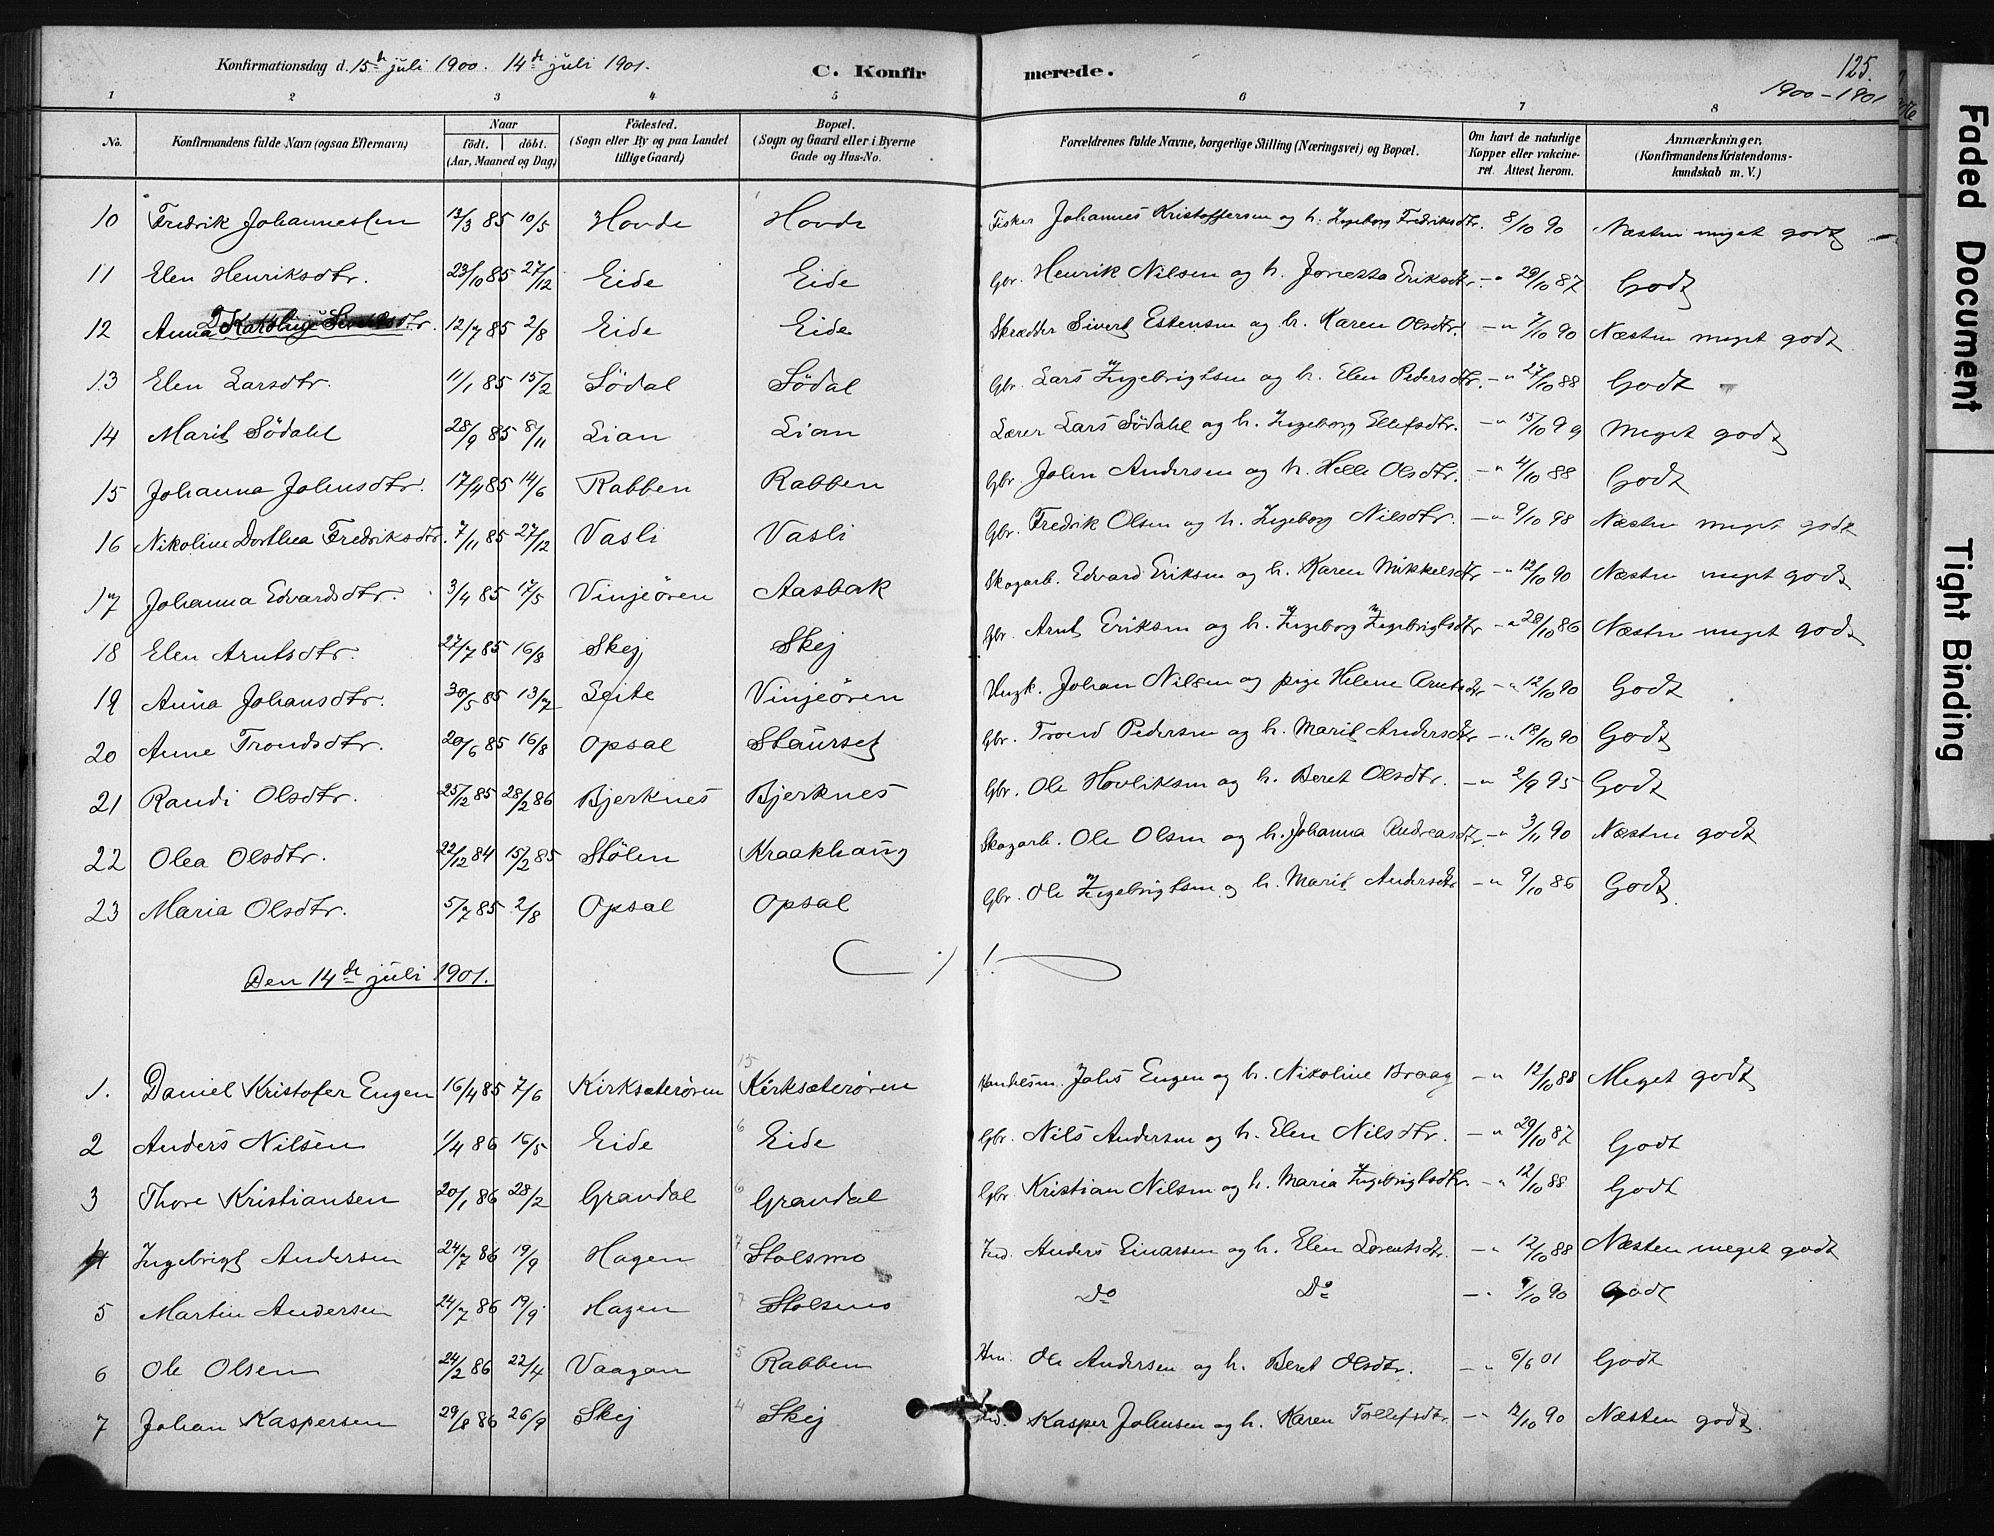 Konfirmationsdag d. 15de juli 1900. 14de juli 1901.
C. Konfirmerede.
125.
1900-1901
1 2 3 4 5 6 7 8
No. Konfirmandens fulde Navn (ogsaa Efternavn) Naar født. døbt. (Aar, Maaned og Dag) Fødested. (Sogn eller By og paa Landet tillige Gaard) Bopæl. (Sogn og Gaard eller i Byerne Gade og Hus-No. Forældrenes fulde Navne, borgerlige Stilling (Næringsvei) og Bopæl. Om havt de naturlige Kopper eller vakcineret. Attest herom. Anmærkninger. (Konfirmandens Kristendomskundskab m. V.)
10 Fredrik Johannessen 13/3 85 10/5 Hovde Hovde Fisker Johannes Kristoffersen og h. Ingeborg Fredriksdtr. 8/10 90 Næsten meget godt
11 Elen Henriksdtr. 23/10 85 27/12 Eide Eide Gbr. Henrik Nilsen og h. Jonetta Eriksdtr. -" 29/10 87 Godt
12 Anna 12/7 85 2/8 Eide Eide Skrædder Sivert Estensen og h. Karen Olsdtr. -" 7/10 90 Næsten meget godt
13 Elen Larsdtr. 11/1 85 15/2 Södal Södal Gbr. Lars Ingebrigtsen og h. Elen Pedersdtr. -" 27/10 88 Godt
14 Marit Södahl 28/9 85 8/11 Lian Lian Lærer Lars Södahl og h. Ingeborg Ellefsdtr. -" 15/10 99 Meget godt
15 Johanna Johnsdtr. 17/4 85 14/6 Rabben Rabben Gbr. John Andersen og h. Helle Olsdtr. -" 4/10 88 Godt
16 Nikoline Dorthea Fredriksdtr. 7/11 85 27/12 Vasli Vasli Gbr. Fredrik Olsen og h. Ingeborg Nilsdtr. -" 9/10 98 Næsten meget godt
17 Johanna Edvardsdtr. 3/4 85 17/5 Vinjeören Aasbak Skogarb. Edvard Eriksen og h. Karen Mikkelsdtr -" 12/10 90 Næsten meget godt
18 Elen Arntsdtr. 27/7 85 16/8 Skej Skej Gbr. Arnt Eriksen og h. Ingeborg Ingebrigtsdtr -" 28/10 86 Næsten meget godt
19 Anna Johansdtr. 30/5 85 13/7 Leite Vinjeören Ungk. Johan Nilsen og pige Helene Arntsdtr -" 12/10 90 Godt
20 Anne Trondsdtr. 20/6 85 16/8 Opsal Staurset Gbr. Trond Pedersen og h. Marit Andersdtr -" 18/10 90 Godt
21 Randi Olsdtr. 25/12 85 28/2 86 Bjerknes Bjerknes Gbr. Ole Hovliksen og h. Beret Olsdtr. -" 2/9 95 Godt
22 Olea Olsdtr. 22/12 84 15/2 85 Stölen Kraakhaug Skogarb. Ole Olsen og h. Johanna Andreasdtr. -" 3/11 90 Næsten godt
23 Maria Olsdtr. 5/7 85 2/8 Opsal Opsal Gbr. Ole Ingebrigtsen og h. Marit Andersdtr -" 9/10 86 Godt.
Den 14de juli 1901.
1. Daniel Kristofer Engen 16/4 85 7/6 Kirksæterøren 15 Kirksæterøren Handelsm. Johs Engen og h. Nikoline Braag -" 12/10 88 Meget godt
2 Anders Nilsen 1/4 86 16/5 Eide 6 Eide Gbr. Nils Andersen og h. Elen Nilsdtr. -" 29/10 87 Godt
3 Thore Kristiansen 20/1 86 28/2 Grandal 6 Grandal Gbr Kristian Nilsen og h. Maria Ingebrigtsdtr. -" 12/10 88 Godt
4 Ingebrigt Andersen 24/7 86 19/9 Hagen 7 Stolsmo Ind. Anders Einarsen og h. Elen Lorentsdtr. -" 12/10 88 Næsten meget godt
5 Martin Andersen 24/7 86 19/9 Hagen 7 Stolsmo Do Do -" 9/10 90 Godt
6 Ole Olsen 24/2 86 22/4 Vaagan 5 Rabben Hm. Ole Andersen og h. Beret Olsdtr. -" 6/6 01 Godt
7 Johan Kaspersen 29/8 86 26/9 Skej 4 Skej Kasper Johnsen og h. Karen Tollefsdtr. -" 12/10 90 Næsten godt.
Faded Document
Tight Binding